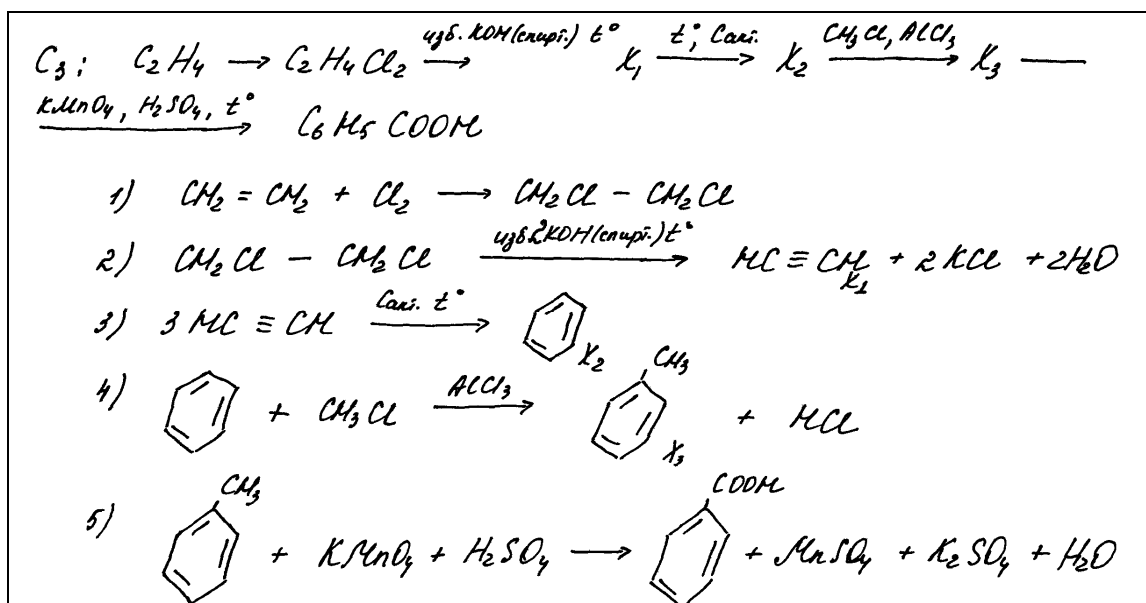 C3: C2H4 → C2H4Cl2 изб. KOH(спирт.) t° → X1 t°, Cакт. → X2 CH3Cl, AlCl3 → X3 —
KMnO4, H2SO4, t° → C6H5COOH
1) CH2 = CH2 + Cl2 → CH2Cl – CH2Cl
2) CH2Cl – CH2Cl изб. 2KOH(спирт.) t° → HC ≡ CH + 2KCl + 2H2O
X1
3) 3HC ≡ CH Cакт. t° → X2
4) + CH3Cl AlCl3 → CH3 X3 + HCl
5) CH3 + KMnO4 + H2SO4 → COOH + MnSO4 + K2SO4 + H2O